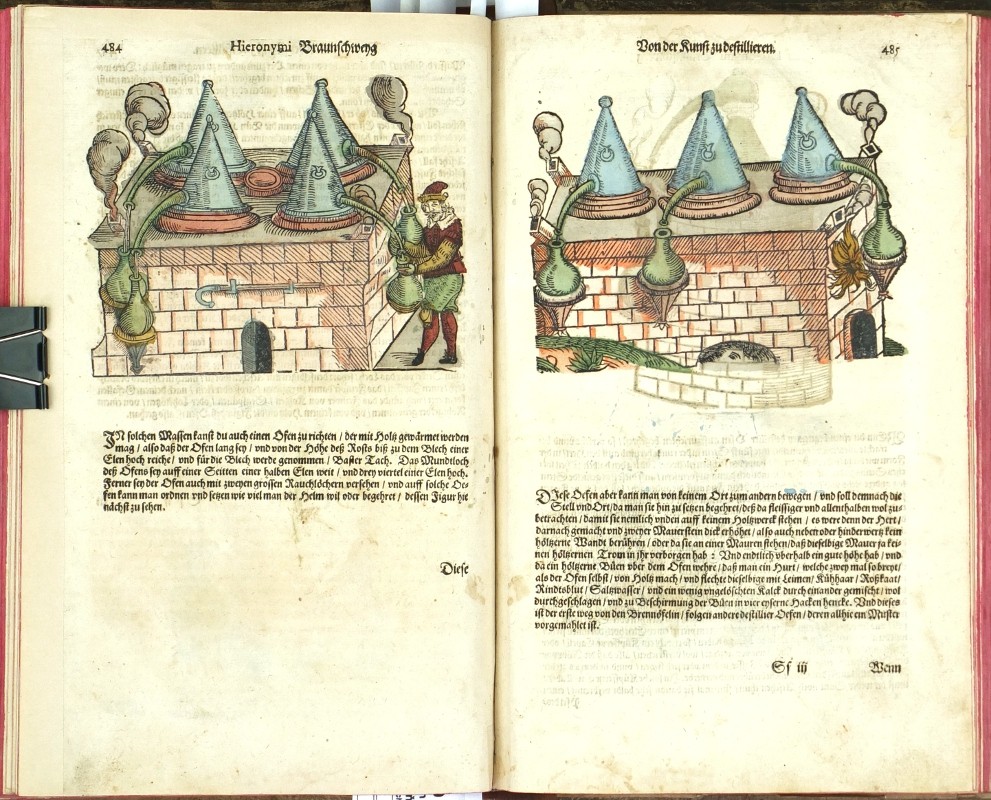 484
Hieronymi Braunschweyg
IN solchen Massen kanst du auch einen Ofen zu richten / der mit Holtz gewärmet werden
mag / also daß der Ofen lang sey / vnd von der Höhe deß Rosts biß zu dem Blech einer
Elen hoch reiche / vnd für die Blech werde genommen / Baster Tach. Das Mundtloch
deß Ofens sey auff einer Seitten einer halben Elen weit / vnd drey viertel einer Elen hoch.
Ferner sey der Ofen auch mit zweyen grossen Rauchlöchern versehen / vnd auff solche Oe-
fen kann man ordnen vnd setzen wie viel man der Helm wil oder begehret / dessen Figur hie
nächst zu sehen.
Diese
Von der Kunst zu destillieren.
485
DIese Oefen aber kann man von keinem Ort zum andern bewegen / vnd soll demnach die
Stell vnd Ort / da man sie hin zu setzen begehret / deß da fleissiger vnd allenthalben wol zu-
betrachten / damit sie nemlich vnden auff keinem Holtzwerck stehen / es were denn der Hert /
darnach gemacht vnd zweyer Mauerstein dick erhöhet / also auch neben oder hinderwertz kein
höltzerne Wandt berühren / oder da sie an einer Mauren stehen / daß dieselbige Mauer ja kei-
nen höltzernen Trom in ihr verborgen hab : Vnd endtlich vberhalb ein gute höhe hab / vnd
da ein höltzerne Büen vber dem Ofen wehre / daß man ein Hurt / welche zwey mal so breyt /
als der Ofen selbst / von Holtz mach / vnd flechte dieselbige mit Leimen / Kühhaar / Roßkaat /
Rindtsblut / Saltzwasser / vnd ein wenig vngelöschten Kalck durch einander gemischt / wol
durchgeschlagen / vnd zu Beschirmung der Büen in vier eyserne Hacken hencke. Vnd dieses
ist der erste weg von den Brennöfelin / folgen andere destillier Oefen / deren allhie ein Muster
vorgemahlet ist.
Sf iij
Wenn